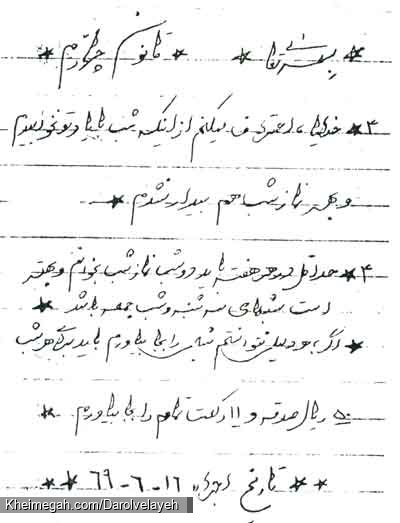 * بسمه تعالی * * قانون چهارم *
۳* خدایا، اعتراف میکنم از اینکه شب با یاد تو نخوابیدم
و بهر نماز شب هم بیدار نشدم *
۴* حداقل در هر هفته باید دو شب نماز شب خوانم و بهتر
است شبهای سه شنبه و شب جمعه باشد *
* اگر به دلیلی نتوانستم شبی را بجا بیاورم باید بجای هر شب
۵۰ ریال صدقه و ۱۱ رکعت تمام را بجا بیاورم *
** تاریخ اجراء ۱۶-۶-۶۹ **
Kheimegah.com/Darolvelayeh